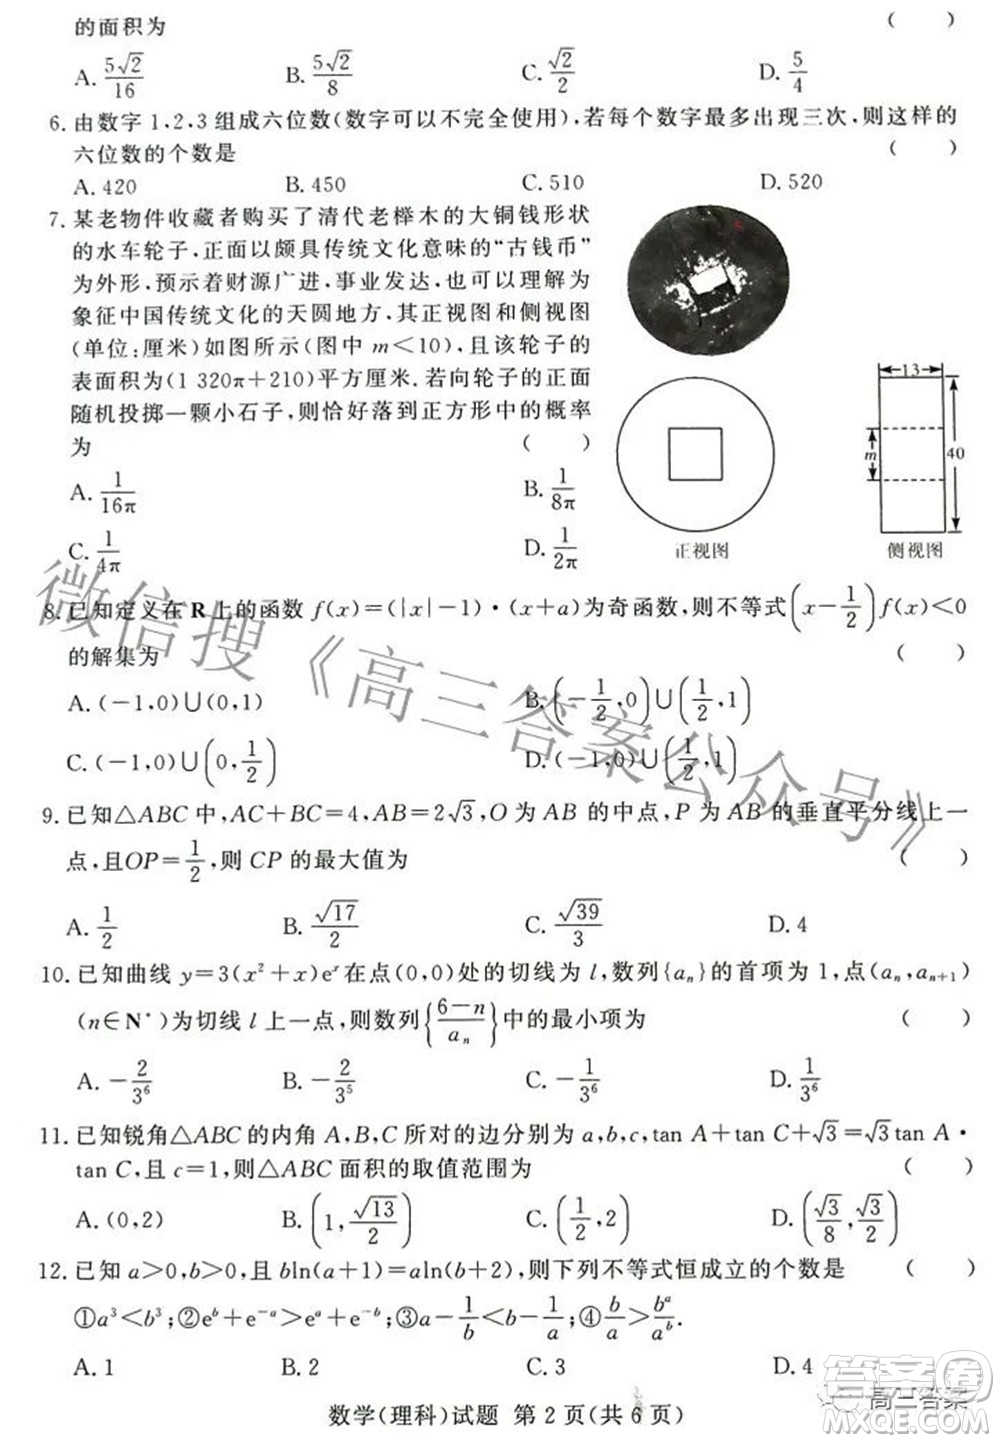 的面积为 (    )
A. 5√2/16 B. 5√2/8 C. √2/2 D. 5/4
6. 由数字 1,2,3 组成六位数(数字可以不完全使用),若每个数字最多出现三次,则这样的
六位数的个数是 (    )
A. 420 B. 450 C. 510 D. 520
7. 某老物件收藏者购买了清代老榉木的大铜钱形状
的水车轮子,正面以颇具传统文化意味的“古钱币”
为外形,预示着财源广进,事业发达,也可以理解为
象征中国传统文化的天圆地方,其正视图和侧视图
(单位:厘米)如图所示(图中 m<10),且该轮子的
表面积为(1 320π+210)平方厘米.若向轮子的正面
随机投掷一颗小石子,则恰好落到正方形中的概率
为 (    )
A. 1/16π B. 1/8π
C. 1/4π D. 1/2π
13
m
40
正视图 侧视图
8. 已知定义在 R 上的函数 f(x)=(|x|-1)·(x+a)为奇函数,则不等式(x-1/2)f(x)<0
的解集为 (    )
A. (-1,0)∪(0,1) B. (-1/2,0)∪(1/2,1)
C. (-1,0)∪(0,1/2) D. (-1,0)∪(1/2,1)
9. 已知△ABC 中,AC+BC=4,AB=2√3,O 为 AB 的中点,P 为 AB 的垂直平分线上一
点,且OP=1/2,则 CP 的最大值为 (    )
A. 1/2 B. √17/2 C. √39/3 D. 4
10. 已知曲线 y=3(x²+x)eˣ 在点(0,0)处的切线为 l,数列{aₙ}的首项为 1,点(aₙ,aₙ₊₁)
(n∈N*)为切线 l 上一点,则数列{(6-n)/aₙ}中的最小项为 (    )
A. -2/3⁶ B. -2/3⁵ C. -1/3⁶ D. 1/3⁶
11. 已知锐角△ABC 的内角 A,B,C 所对的边分别为 a,b,c,tan A+tan C+√3=√3tan A·
tan C,且 c=1,则△ABC 面积的取值范围为 (    )
A. (0,2) B. (1,√13/2) C. (1/2,2) D. (√3/8,√3/2)
12. 已知 a>0,b>0,且 bln(a+1)=aln(b+2),则下列不等式恒成立的个数是 (    )
①a³<b³;②eᵇ+e⁻ᵃ>eᵃ+e⁻ᵇ;③a-1/b<b-1/a;④b/a>bᵃ/aᵇ.
A. 1 B. 2 C. 3 D. 4
数学(理科)试题 第 2 页(共 6 页)
微信搜《高三答案公众号》
答案圈
高三答案